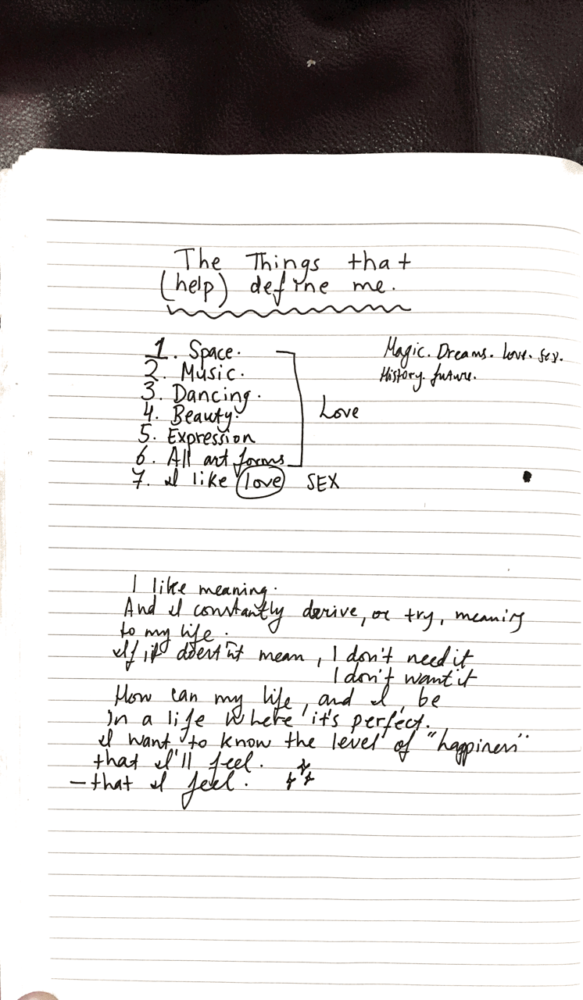 The Things that
(help) define me.
1. Space.
2. Music.
3. Dancing.
4. Beauty.
5. Expression
6. All art forms
7. I like love SEX
Love
Magic. Dreams. Love. Sex.
History. future.
I like meaning.
And I constantly derive, or try, meaning
to my life.
If it doesn't mean, I don't need it
I don't want it
How can my life, and I, be
In a life where it's perfect.
I want to know the level of "happiness"
that I'll feel.
– that I feel.